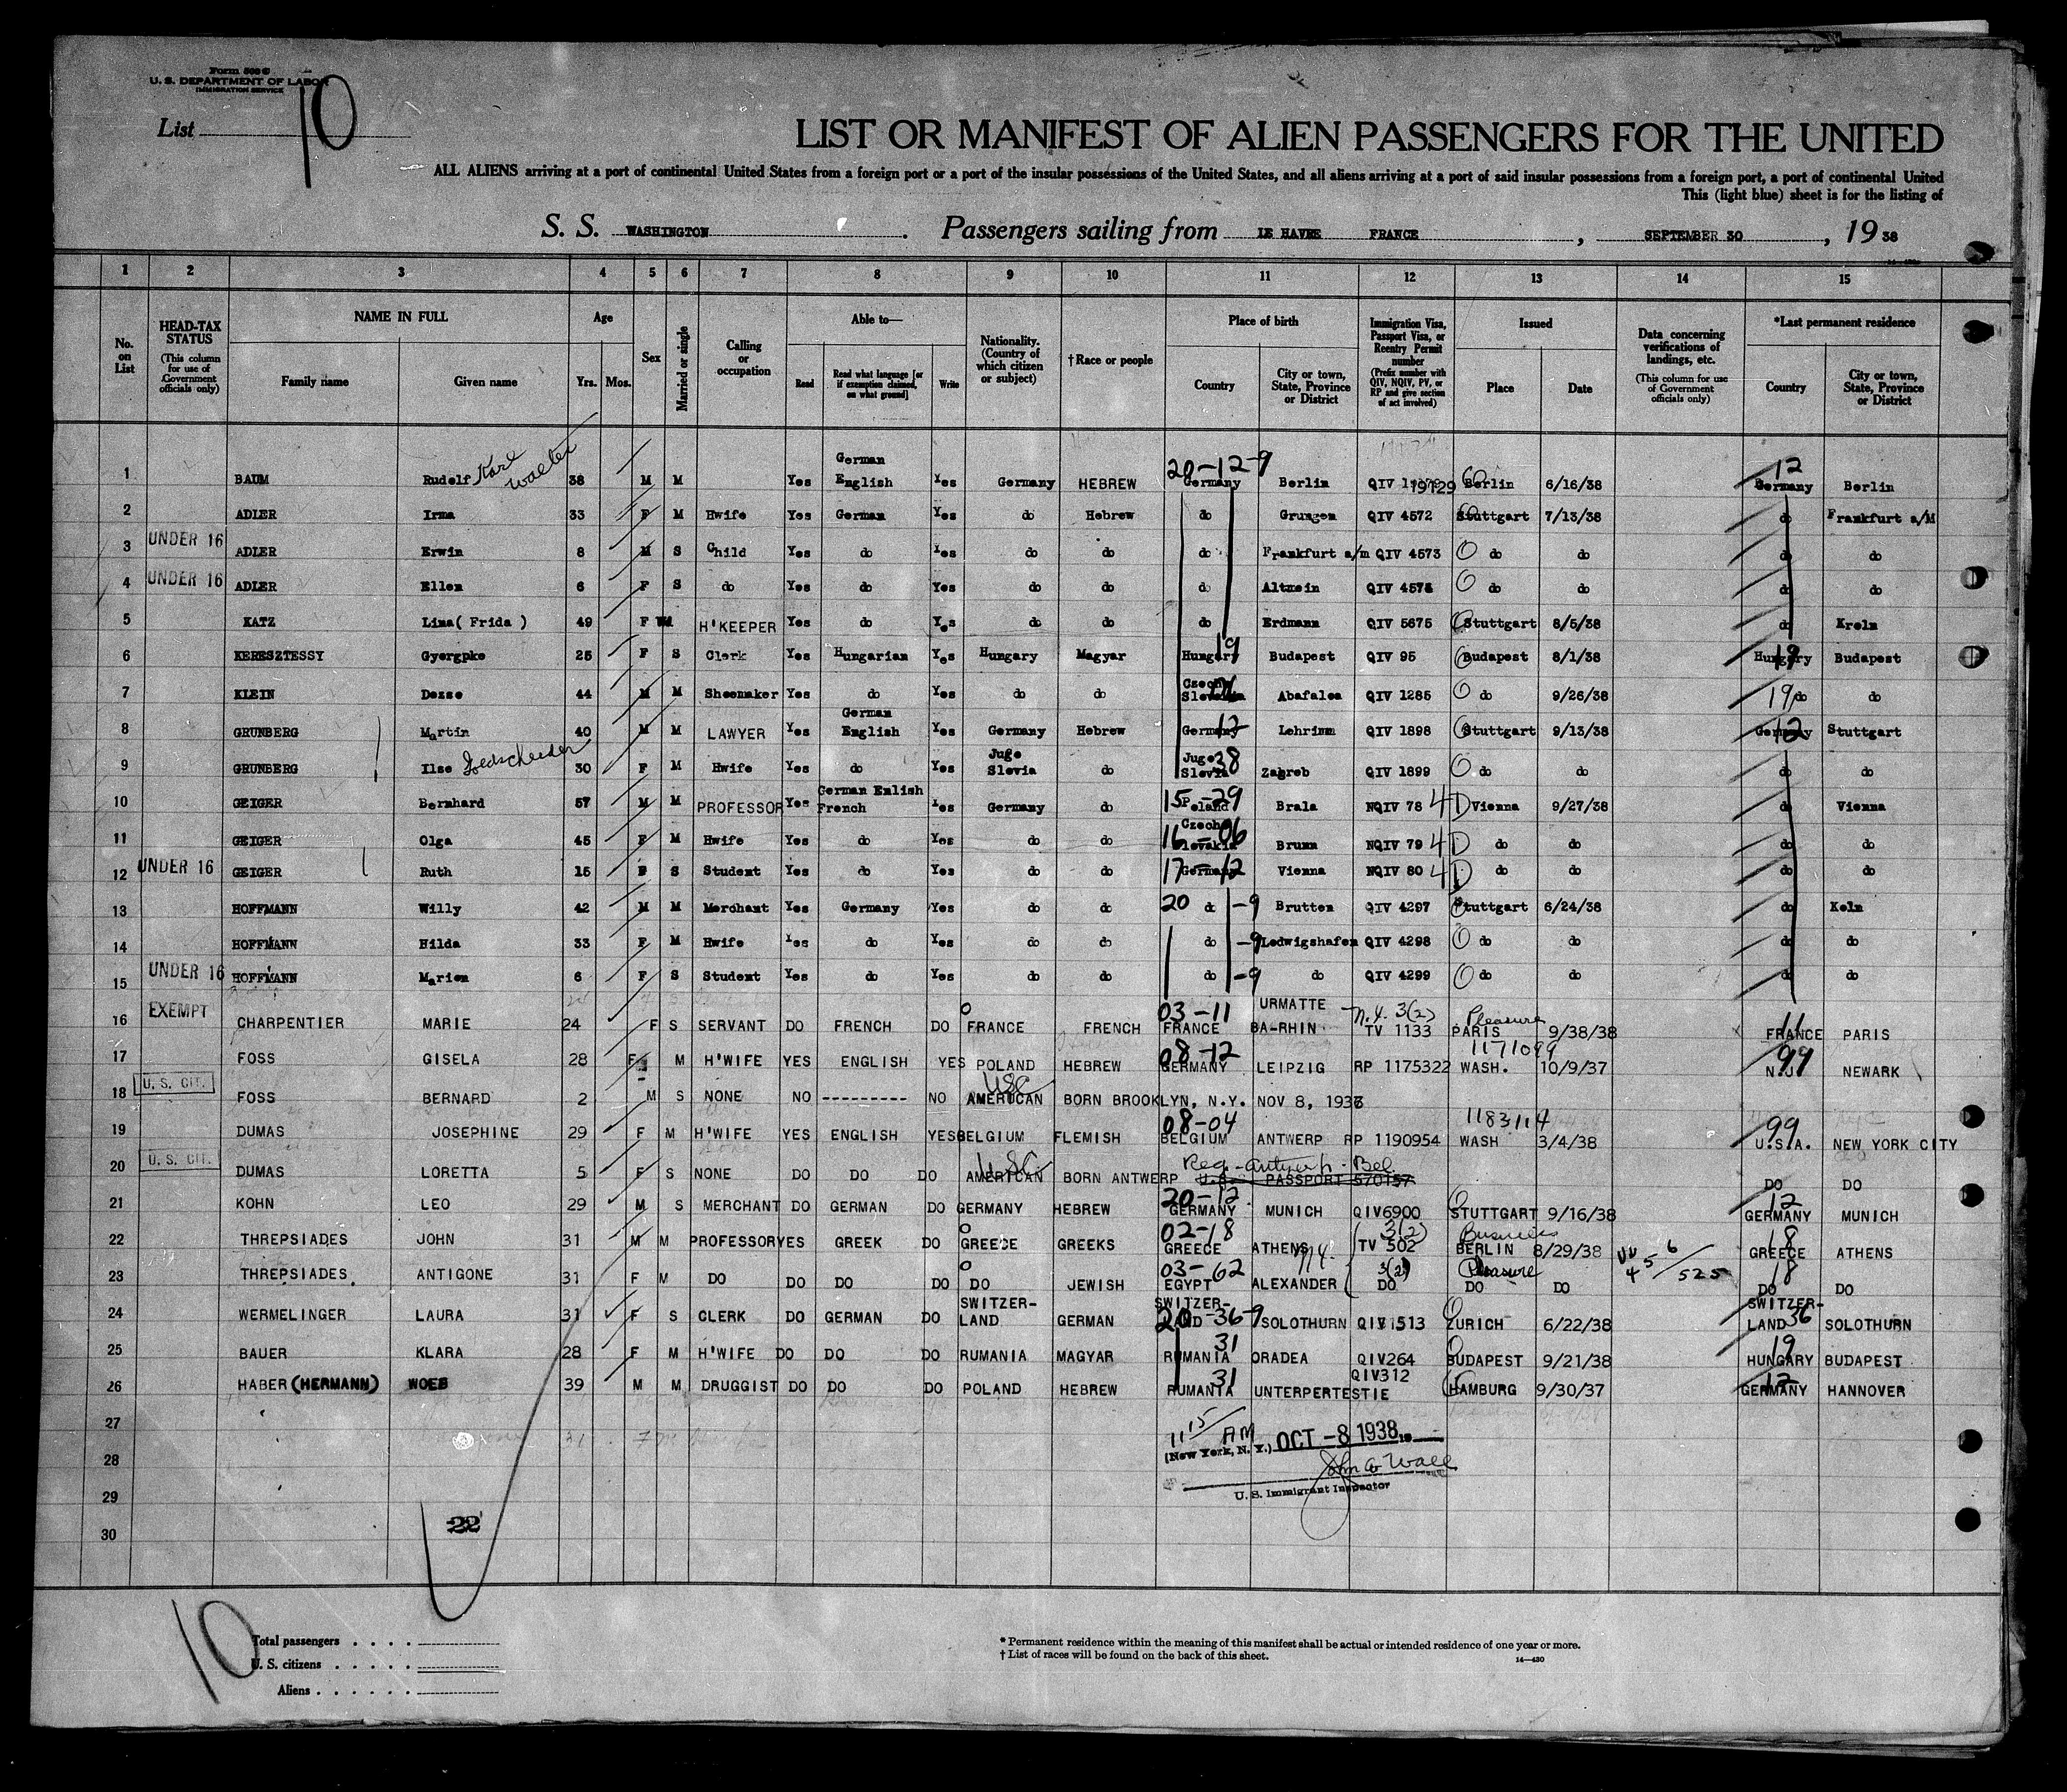 Form 500 C
U. S. DEPARTMENT OF LABOR
IMMIGRATION SERVICE
List 10
LIST OR MANIFEST OF ALIEN PASSENGERS FOR THE UNITED
ALL ALIENS arriving at a port of continental United States from a foreign port or a port of the insular possessions of the United States, and all aliens arriving at a port of said insular possessions from a foreign port, a port of continental United
This (light blue) sheet is for the listing of
S. S. WASHINGTON . Passengers sailing from LE HAVRE FRANCE , SEPTEMBER 30 , 19 38
1 2 3 4 5 6 7 8 9 10 11 12 13 14 15
No. on List
HEAD-TAX STATUS (This column for use of Government officials only)
NAME IN FULL Family name Given name
Age Yrs. Mos.
Sex
Married or single
Calling or occupation
Able to— Read Read what language [or if exemption claimed, on what ground] Write
Nationality. (Country of which citizen or subject)
† Race or people
Place of birth Country City or town, State, Province or District
Immigration Visa, Passport Visa, or Reentry Permit number (Prefix number with QIV, NQIV, PV, or RP and give section of act involved)
Issued Place Date
Data concerning verifications of landings, etc. (This column for use of Government officials only)
*Last permanent residence Country City or town, State, Province or District
1 BAUM Rudolf Karl Walter 38 M M Yes German English Yes Germany HEBREW 20-12-9 Germany Berlin QIV 19129 Berlin 6/16/38 12 Germany Berlin
2 ADLER Irma 33 F M Hwife Yes German Yes do Hebrew do Grungen QIV 4572 Stuttgart 7/13/38 do Frankfurt a/M
3 UNDER 16 ADLER Erwin 8 M S Child Yes do Yes do do do Frankfurt a/m QIV 4573 do do do do
4 UNDER 16 ADLER Ellen 6 F S do Yes do Yes do do do Altzein QIV 4575 do do do do
5 KATZ Lina( Frida ) 49 F Wd H'KEEPER Yes do Yes do do do Erdmann QIV 5675 Stuttgart 8/5/38 do Kreln
6 KERESZTESSY Gyergpke 25 F S Clerk Yes Hungarian Yes Hungary Magyar Hungary 19 Budapest QIV 95 Budapest 8/1/38 Hungary 19 Budapest
7 KLEIN Dezse 44 M M Shoemaker Yes do Yes do do Czecho Slovakia Abafalea QIV 1285 do 9/26/38 19 do do
8 GRUNBERG Martin 40 M M LAWYER Yes German English Yes Germany Hebrew Germany 12 Lehrinm QIV 1898 Stuttgart 9/13/38 Germany 12 Stuttgart
9 GRUNBERG Ilse 30 F M Hwife Yes do Yes Jugo Slevia do Jugo Slevia 38 Zagreb QIV 1899 do do do do
10 GEIGER Bernhard 57 M M PROFESSOR Yes German Enlish French Yes Germany do 15 Poland -29 Brala NQIV 78 4D Vienna 9/27/38 do Vienna
11 GEIGER Olga 45 F M Hwife Yes do Yes do do 16 Czecho Slovakia -06 Brunn NQIV 79 4D do do do do
12 UNDER 16 GEIGER Ruth 15 F S Student Yes do Yes do do 17 Germany -12 Vienna NQIV 80 4D do do do do
13 HOFFMANN Willy 42 M M Merchant Yes Germany Yes do do 20 do -9 Brutten QIV 4297 Stuttgart 6/24/38 do Keln
14 HOFFMANN Hilda 33 F M Hwife Yes do Yes do do do -9 Ledwigshafen QIV 4298 do do do do
15 UNDER 16 HOFFMANN Marien 6 F S Student Yes do Yes do do do -9 do QIV 4299 do do do do
16 EXEMPT CHARPENTIER MARIE 24 F S SERVANT DO FRENCH DO FRANCE FRENCH 03-11 FRANCE URMATTE BA-RHIN n.y. 3(2) TV 1133 Pleasure PARIS 9/38/38 11 FRANCE PARIS
17 FOSS GISELA 28 F M H'WIFE YES ENGLISH YES POLAND HEBREW 08-12 GERMANY LEIPZIG RP 1175322 1171099 WASH. 10/9/37 99 N.J. NEWARK
18 U. S. CIT. FOSS BERNARD 2 M S NONE NO --------- NO USC AMERICAN BORN BROOKLYN, N.Y. NOV 8, 1936
19 DUMAS JOSEPHINE 29 F M H'WIFE YES ENGLISH YES BELGIUM FLEMISH 08-04 BELGIUM ANTWERP RP 1190954 1183114 WASH 3/4/38 99 U.S.A. NEW YORK CITY
20 U. S. CIT. DUMAS LORETTA 5 F S NONE DO DO DO USC AMERICAN BORN ANTWERP Reg.-Antwerp-Bel. U.S. PASSPORT 570157 DO DO
21 KOHN LEO 29 M S MERCHANT DO GERMAN DO GERMANY HEBREW 20-12 GERMANY MUNICH QIV6900 STUTTGART 9/16/38 12 GERMANY MUNICH
22 THREPSIADES JOHN 31 M M PROFESSOR YES GREEK DO GREECE GREEKS 02-18 GREECE ATHENS n.y. 3(2) TV 502 Business BERLIN 8/29/38 18 GREECE ATHENS
23 THREPSIADES ANTIGONE 31 F M DO DO DO DO DO JEWISH 03-62 EGYPT ALEXANDER 3(2) DO Pleasure DO DO 18 DO DO
24 WERMELINGER LAURA 31 F S CLERK DO GERMAN DO SWITZER-LAND GERMAN SWITZER-LAND 20-36-9 SOLOTHURN QIV 1513 ZURICH 6/22/38 SWITZER-LAND 36 SOLOTHURN
25 BAUER KLARA 28 F M H'WIFE DO DO DO RUMANIA MAGYAR 31 RUMANIA ORADEA QIV264 BUDAPEST 9/21/38 19 HUNGARY BUDAPEST
26 HABER (HERMANN) WOEB 39 M M DRUGGIST DO DO DO POLAND HEBREW 31 RUMANIA UNTERPERTESTIE QIV312 HAMBURG 9/30/37 12 GERMANY HANNOVER
27
28
29
30
11 15 AM
(New York, N. Y.) OCT -8 1938 19
John G Wall
U. S. Immigrant Inspector
22
10
Total passengers . . . .
U. S. citizens . . . . .
Aliens . . . . . .
* Permanent residence within the meaning of this manifest shall be actual or intended residence of one year or more.
† List of races will be found on the back of this sheet.
14—430